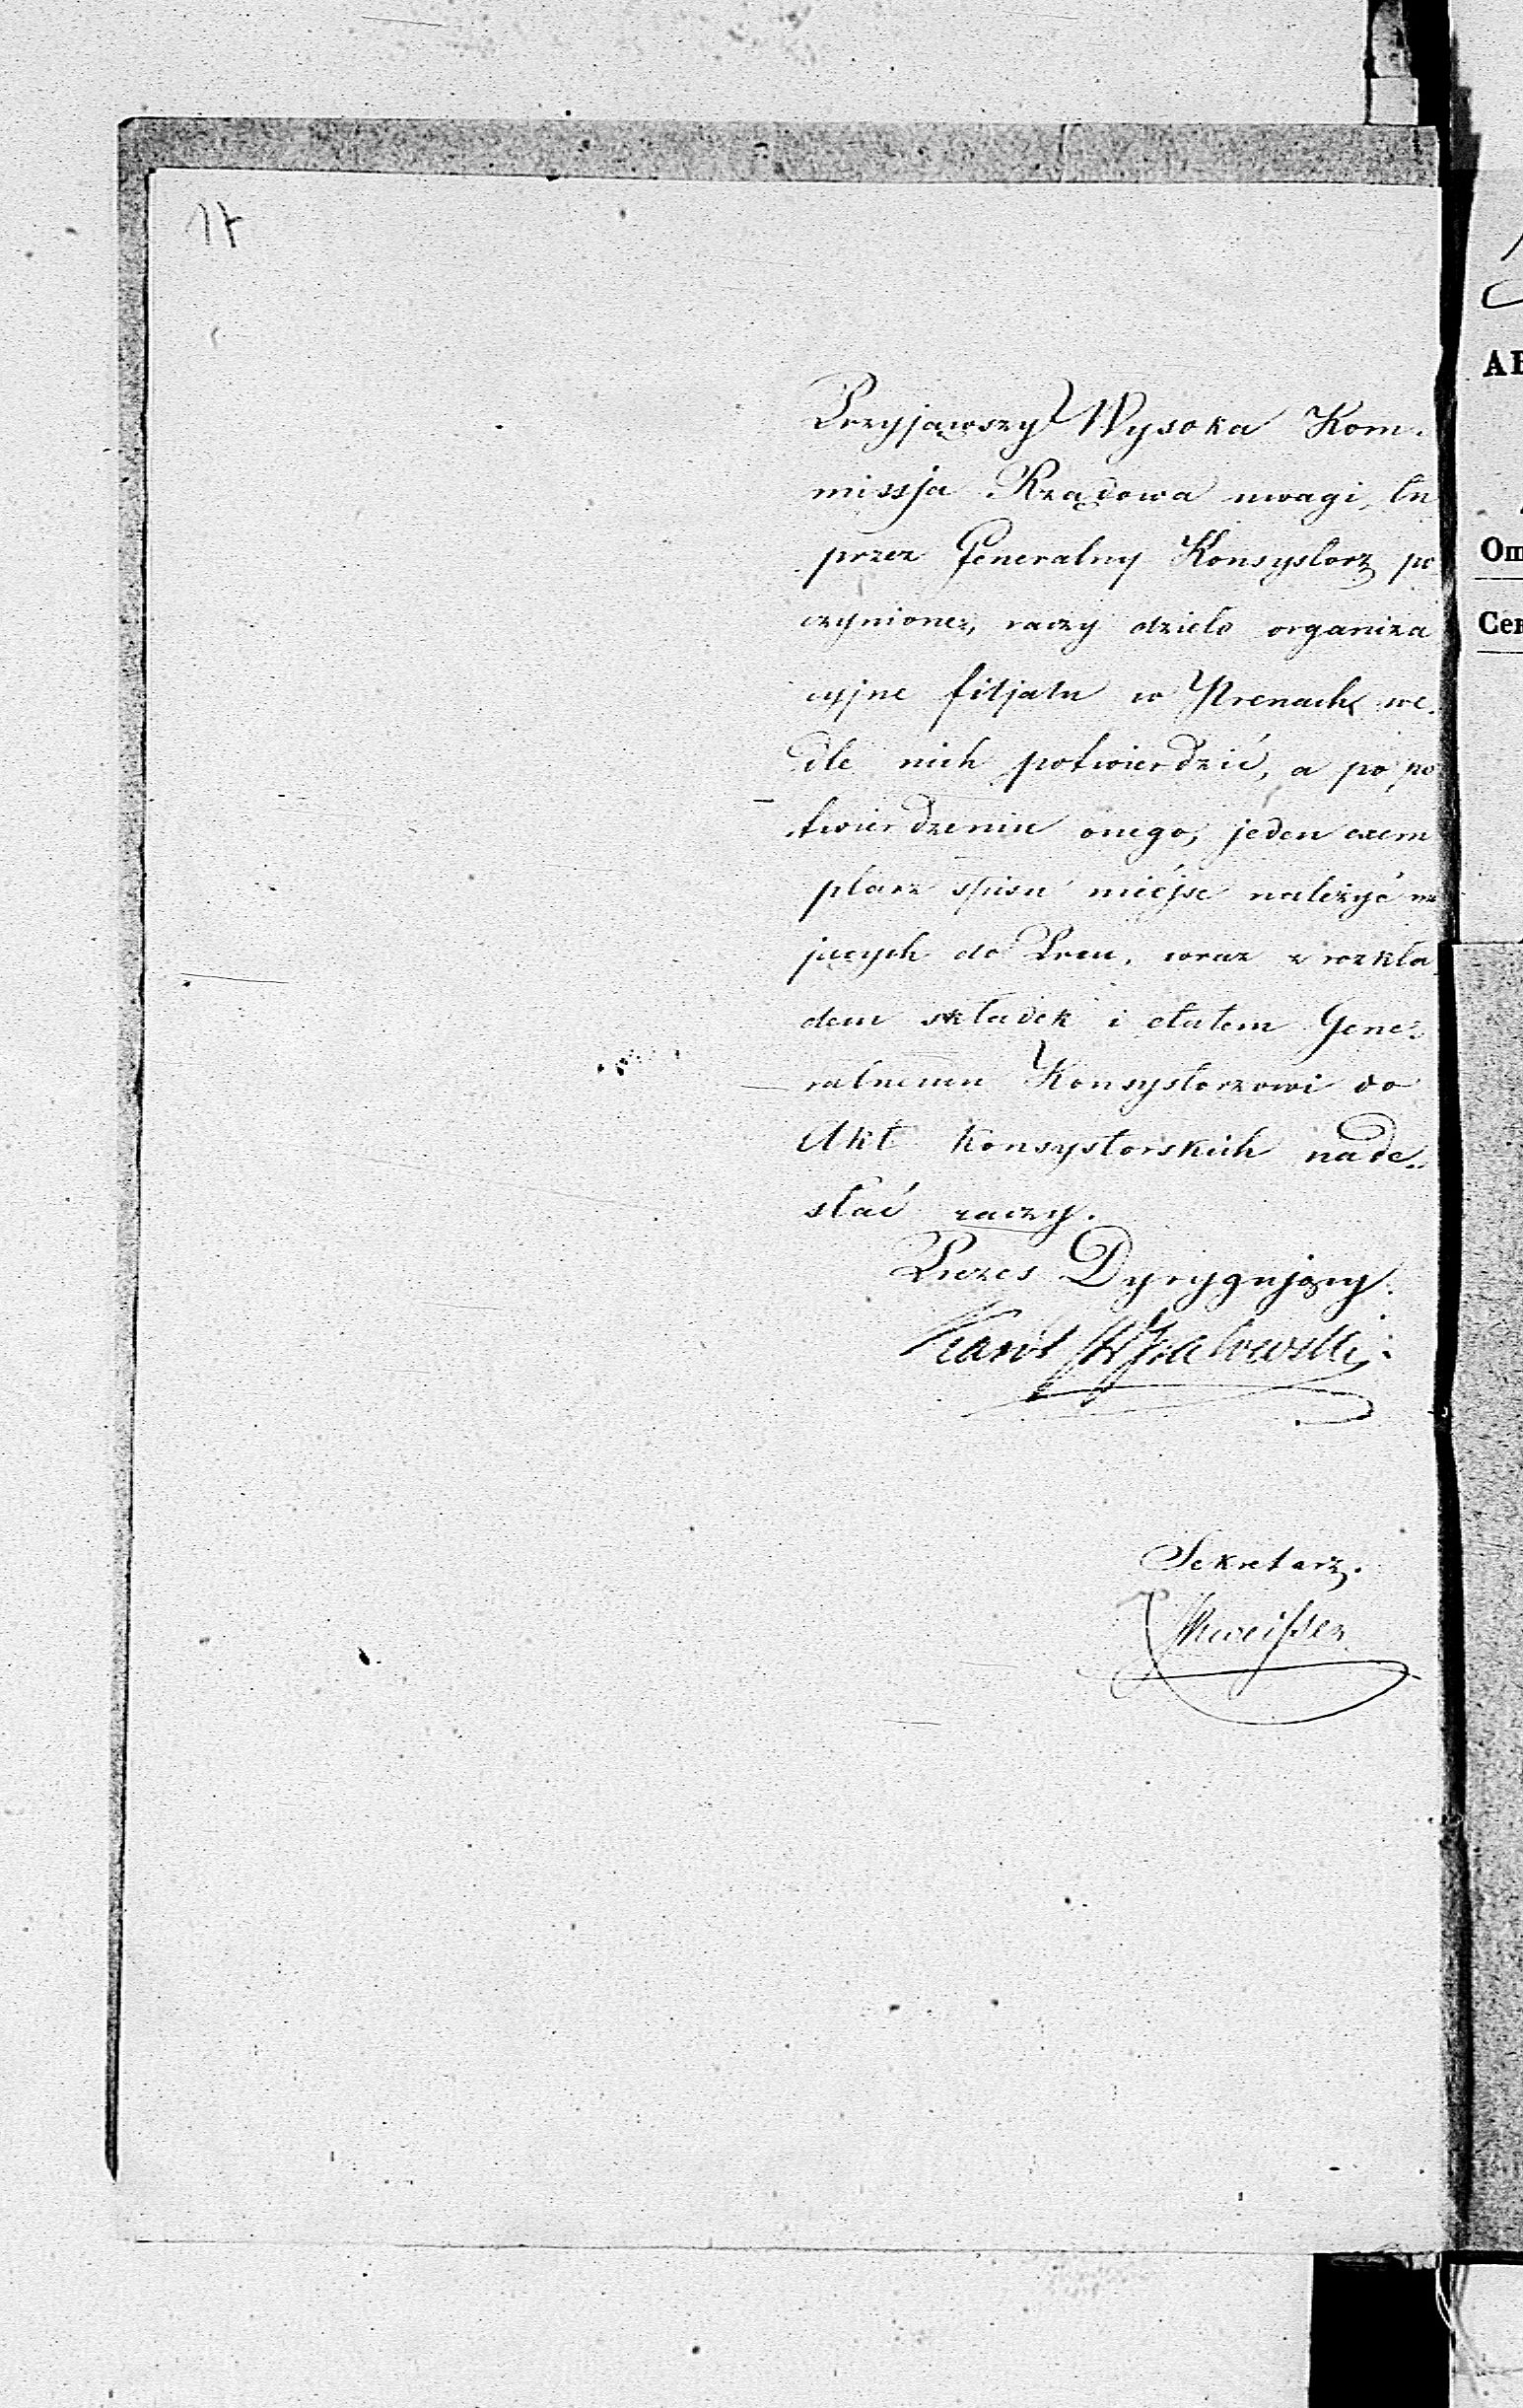 17
Przyjąwszy Wysoka Kom-
missja Rządowa uwagi, tu
przez Generalny Konsystorz po
czynione, raczy dzieło organiza
cyjne filjału w Prenach we-
dle nich potwierdzić, a po po
twierdzeniu onego, jeden exem
plarz spisu miéjsc należyć ma
jących do Pren, wraz z rozkła
dem składek i etatem Gene-
ralnemu Konsystorzowi do
Akt Konsystorskich nade-
słać raczy.
Prezes Dyrygujący.
Karol
Sekretarz.